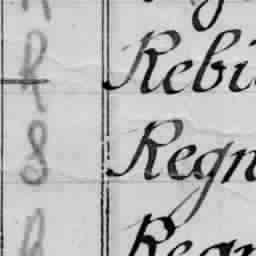 R Rebi
8 Regn
R Regn